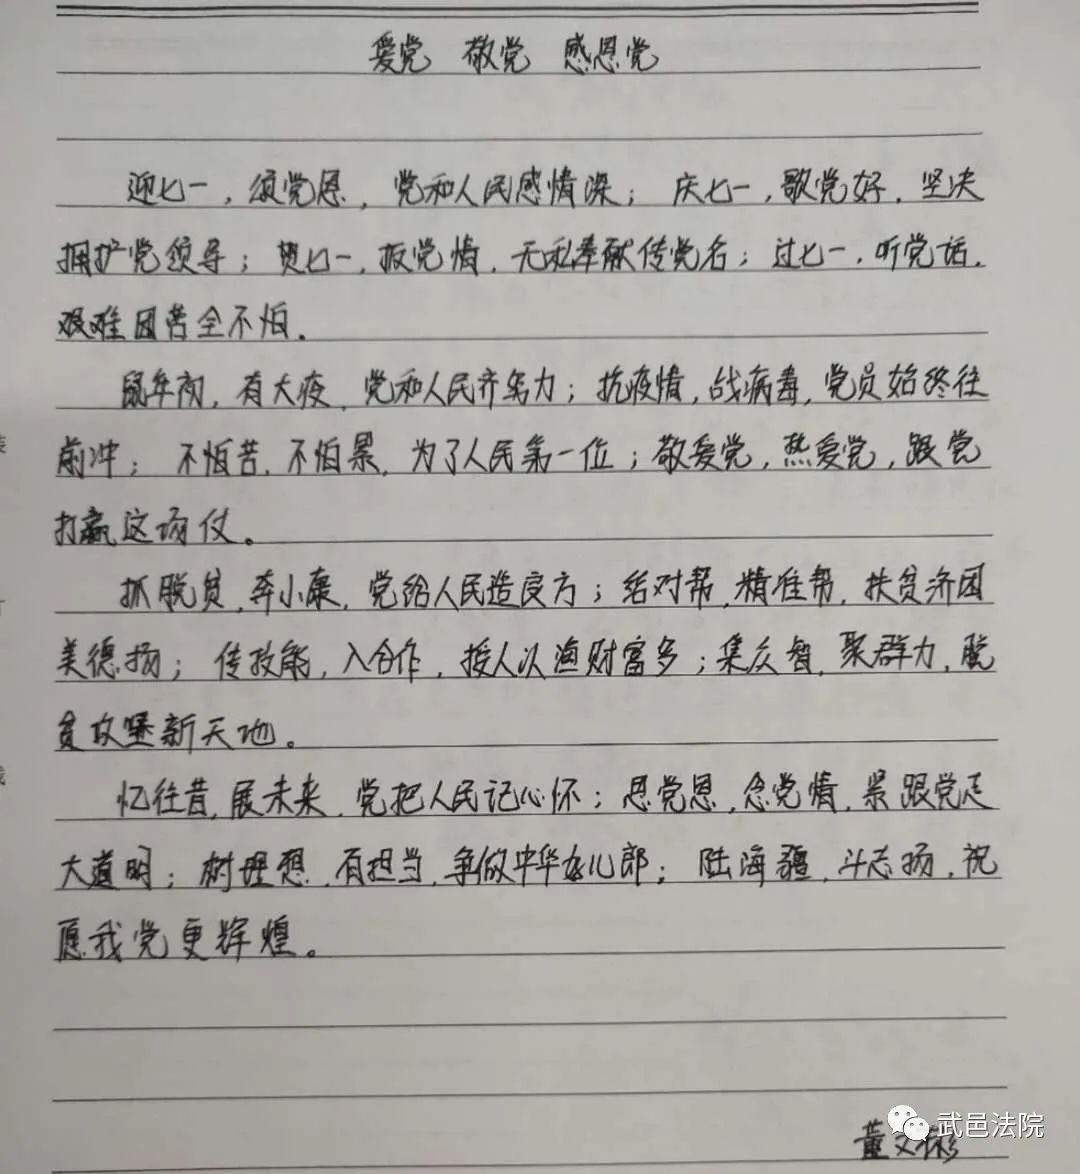 爱党 敬党 感恩党
迎七一，颂党恩，党和人民感情深；庆七一，歌党好，坚决
拥护党领导；贺七一，报党情，无私奉献传党名；过七一，听党话，
艰难困苦全不怕。
鼠年初，有大疫，党和人民齐努力；抗疫情，战病毒，党员始终往
前冲；不怕苦，不怕累，为了人民第一位；敬爱党，热爱党，跟党
打赢这场仗。
抓脱贫，奔小康，党给人民造良方；结对帮，精准帮，扶贫济困
美德扬；传技能，入合作，授人以渔财富多；集众智，聚群力，脱
贫攻坚新天地。
忆往昔，展未来，党把人民记心怀；思党恩，念党情，紧跟党走
大道明；树理想，有担当，争做中华好儿郎；陆海疆，斗志扬，祝
愿我党更辉煌。
董文彬
武邑法院